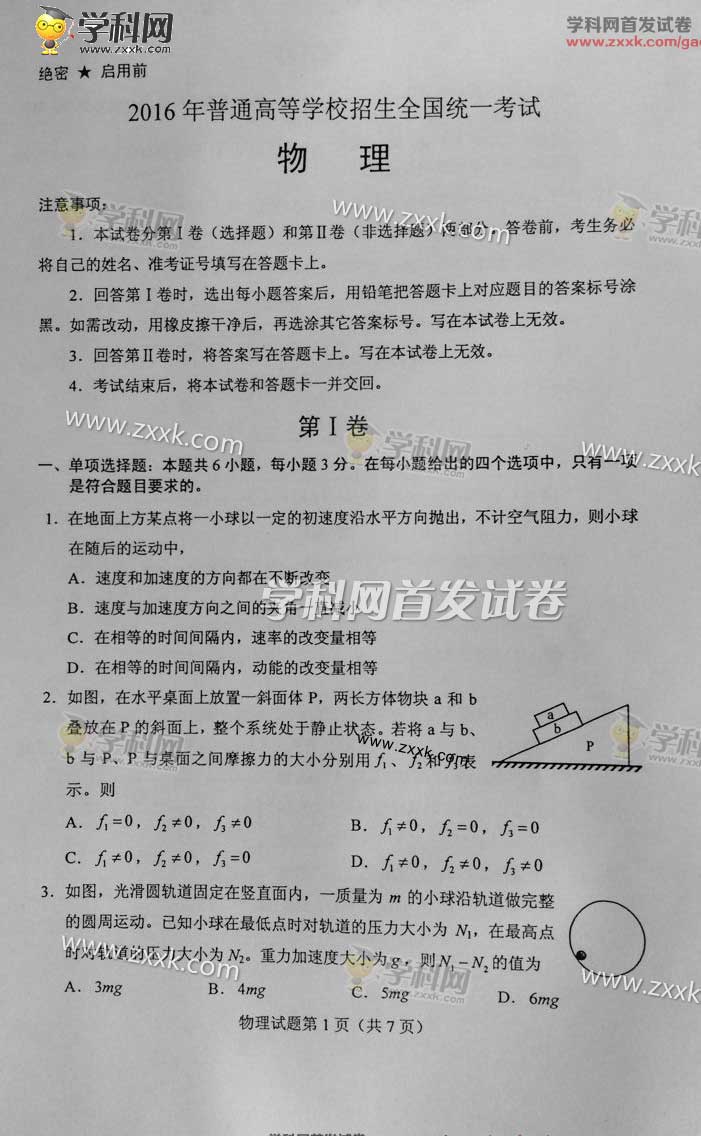 学科网
www.zxxk.com
学科网首发试卷
www.zxxk.com/gao
绝密 ★ 启用前
2016 年普通高等学校招生全国统一考试
物 理
注意事项:
1. 本试卷分第Ⅰ卷(选择题)和第Ⅱ卷(非选择题)两部分。答卷前,考生务必
将自己的姓名、准考证号填写在答题卡上。
2. 回答第Ⅰ卷时,选出每小题答案后,用铅笔把答题卡上对应题目的答案标号涂
黑。如需改动,用橡皮擦干净后,再选涂其它答案标号。写在本试卷上无效。
3. 回答第Ⅱ卷时,将答案写在答题卡上。写在本试卷上无效。
4. 考试结束后,将本试卷和答题卡一并交回。
第Ⅰ卷
一、单项选择题:本题共 6 小题,每小题 3 分。在每小题给出的四个选项中,只有一项
是符合题目要求的。
1. 在地面上方某点将一小球以一定的初速度沿水平方向抛出,不计空气阻力,则小球
在随后的运动中,
A. 速度和加速度的方向都在不断改变
B. 速度与加速度方向之间的夹角一直减小
C. 在相等的时间间隔内,速率的改变量相等
D. 在相等的时间间隔内,动能的改变量相等
学科网首发试卷
2. 如图,在水平桌面上放置一斜面体 P,两长方体物块 a 和 b
叠放在 P 的斜面上,整个系统处于静止状态。若将 a 与 b、
b 与 P、P 与桌面之间摩擦力的大小分别用 f₁、f₂ 和 f₃ 表
示。则
a
b
P
A. f₁=0,f₂≠0,f₃≠0 B. f₁≠0,f₂=0,f₃=0
C. f₁≠0,f₂≠0,f₃=0 D. f₁≠0,f₂≠0,f₃≠0
3. 如图,光滑圆轨道固定在竖直面内,一质量为 m 的小球沿轨道做完整
的圆周运动。已知小球在最低点时对轨道的压力大小为 N₁,在最高点
时对轨道的压力大小为 N₂。重力加速度大小为 g,则 N₁−N₂ 的值为
A. 3mg B. 4mg C. 5mg D. 6mg
物理试题第 1 页(共 7 页)